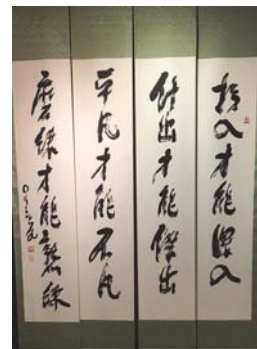 投入才能深入
付出才能傑出
平凡才能不凡
磨練才能練